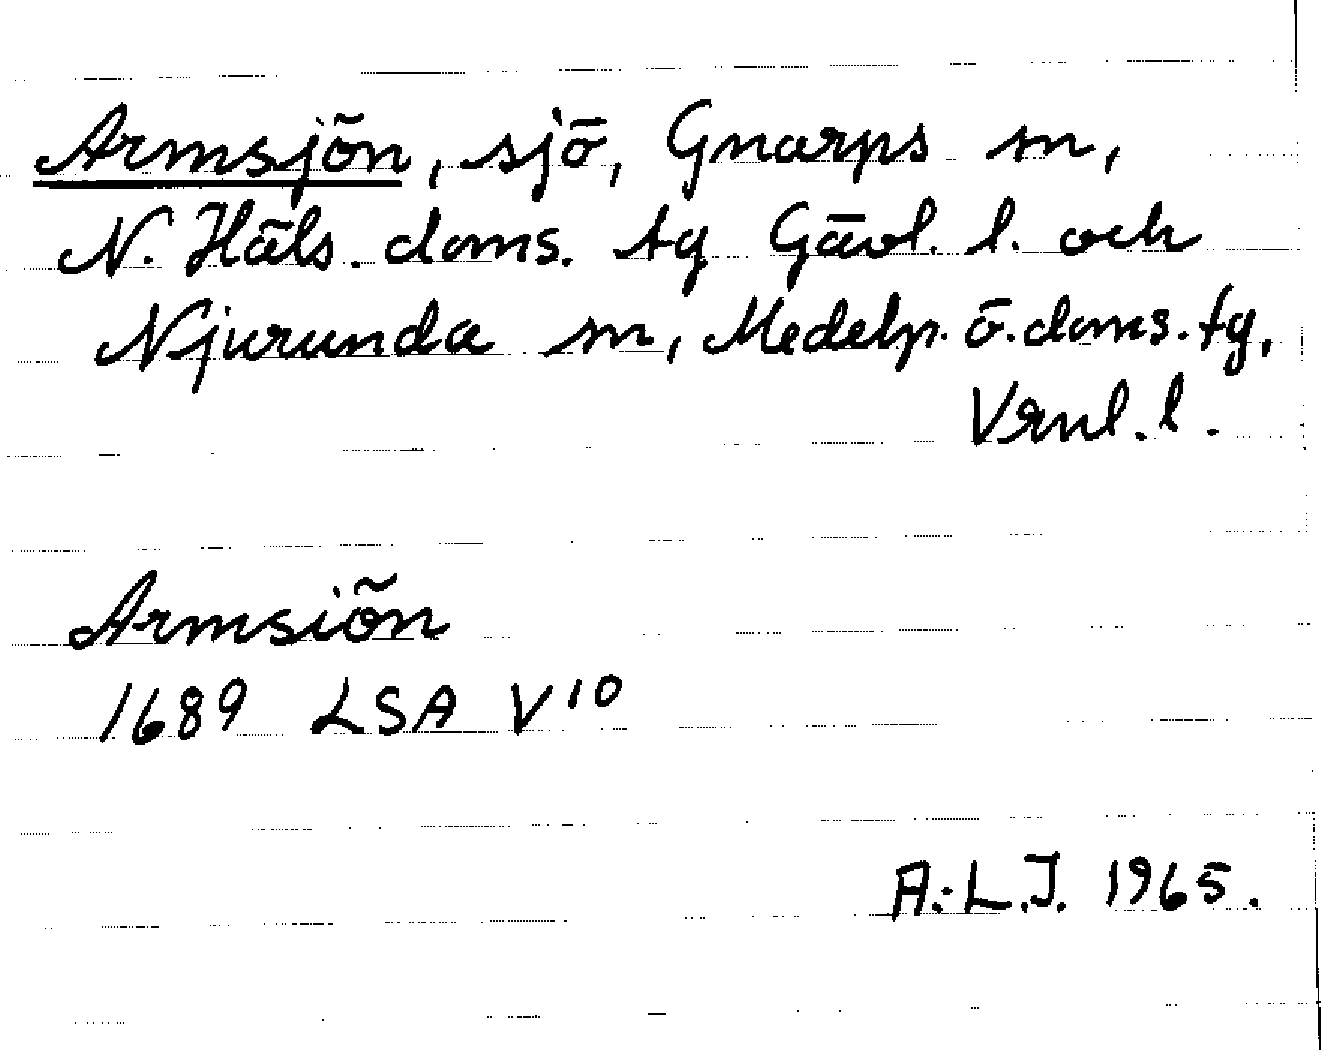 Armsjön, sjö, Gnarps sn,
N. Häls. doms. tg Gävl. l. och
Njurunda sn, Medelp. ö. doms. tg,
Vrnl. l.
Armsiön
1689 LSA V10
A.-L.J. 1965.